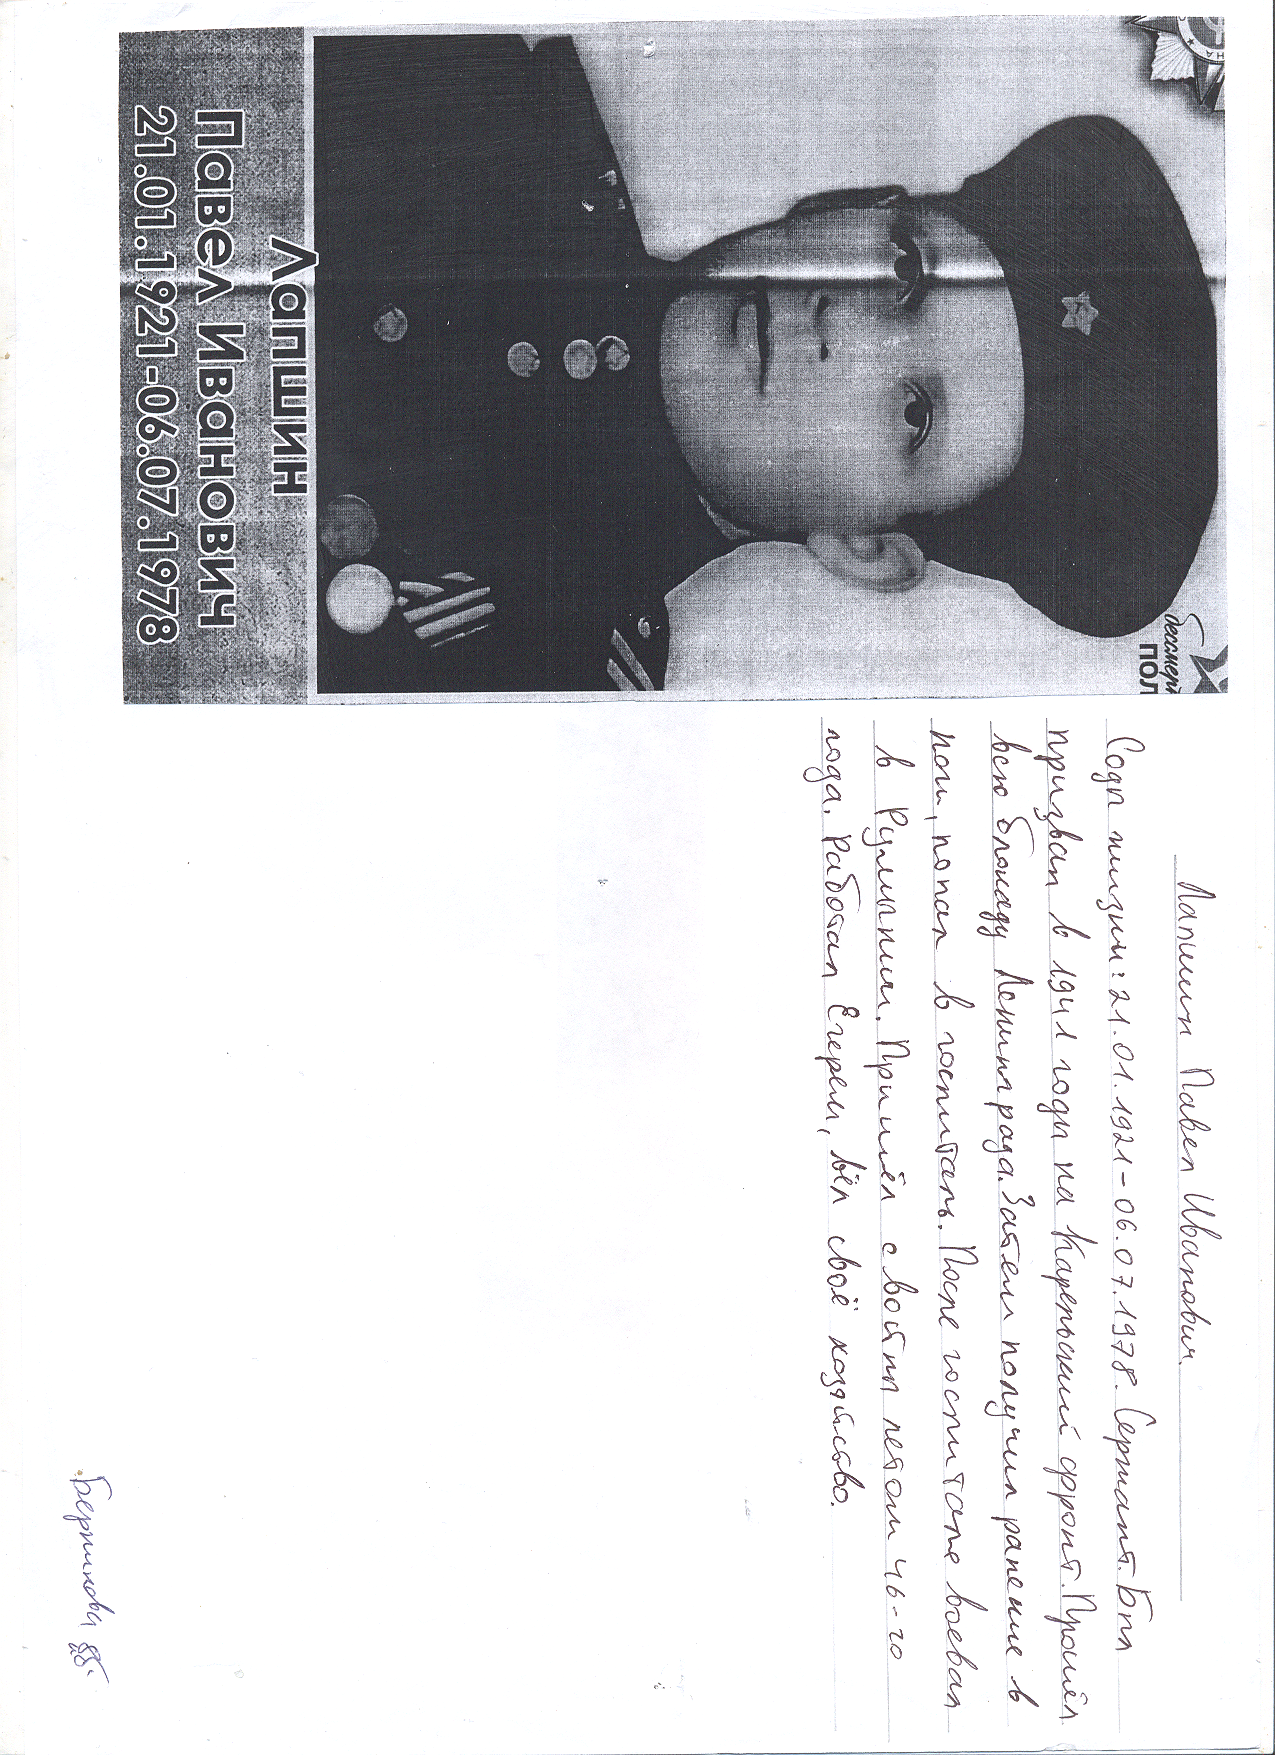 бессмер
ПОЛ
Лапшин
Павел Иванович
21.01.1921-06.07.1978
Лапшин Павел Иванович.
Годы жизни: 21.01.1921-06.07.1978. Сержант. Был
призван в 1941 годы на Карельский фронт. Прошёл
всю блокаду Ленинграда. Затем получил ранение в
ноги, попал в госпиталь. После госпиталя воевал
в Румынии. Пришёл с войны летом 46-го
года. Работал Егерем, вёл своё хозяйство.